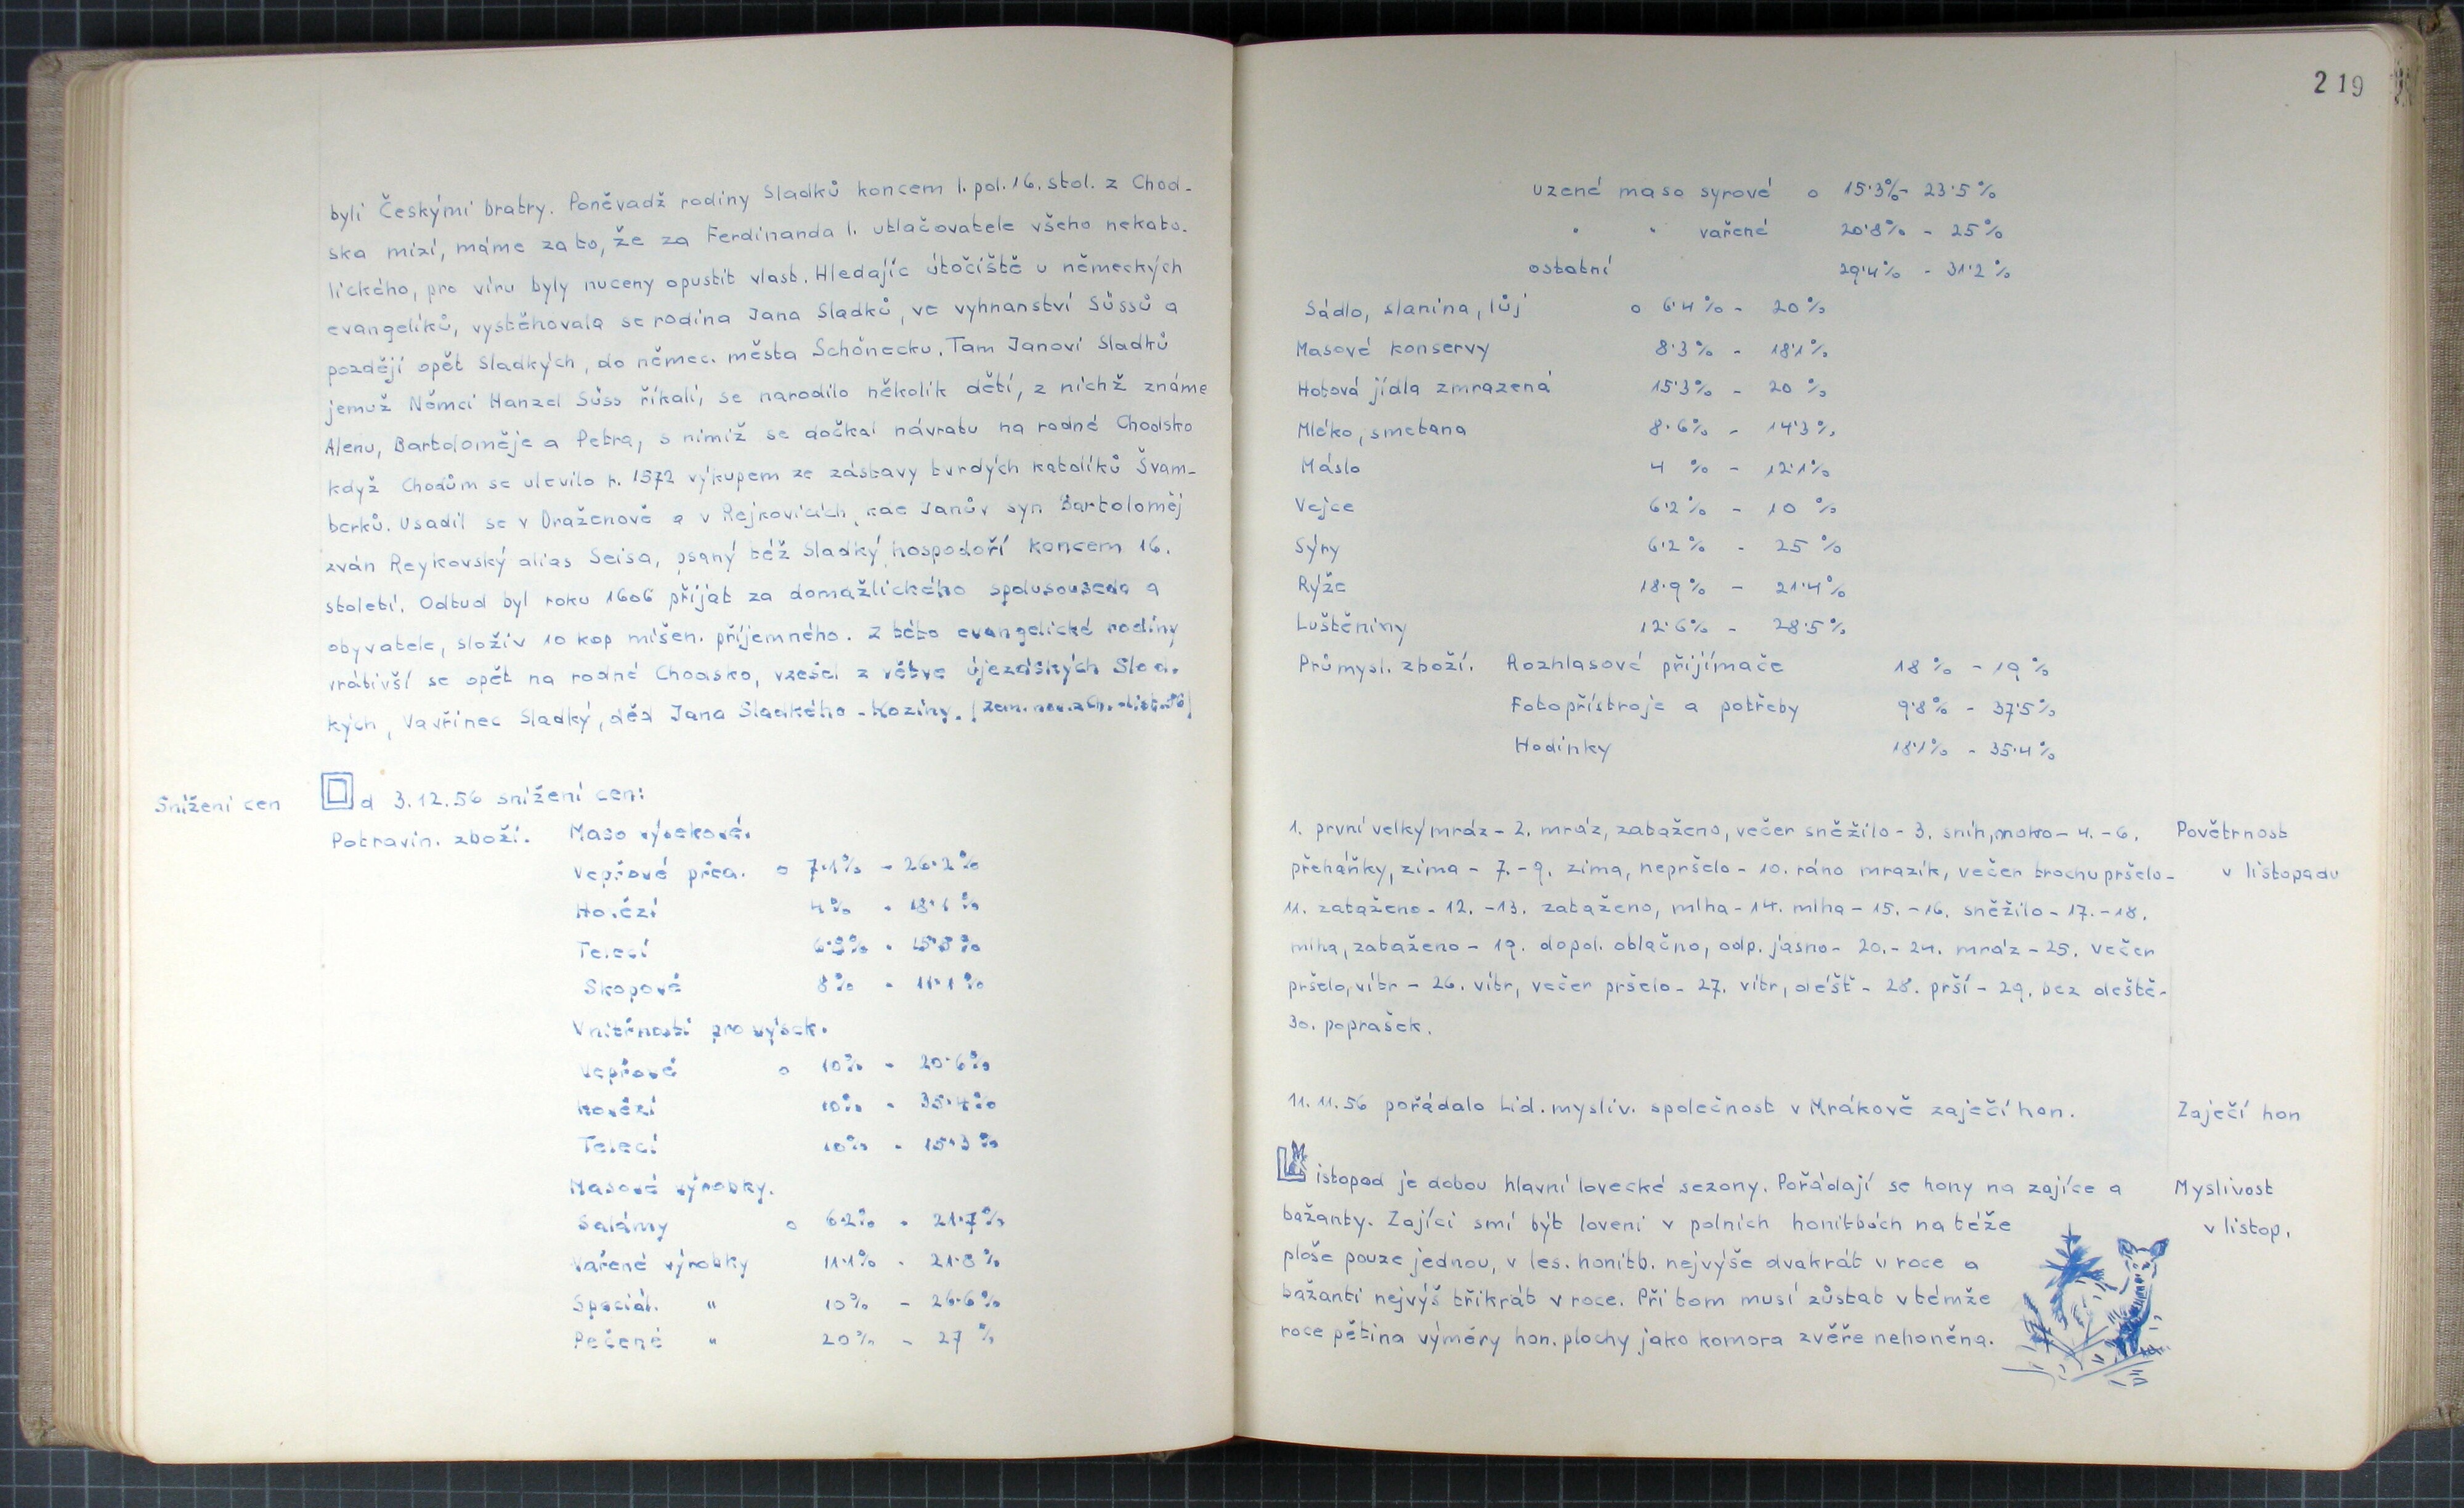 byli Českými bratry. Poněvadž rodiny Sladků koncem 1. pol. 16. stol. z Chod-
ska mizí, máme za to, že za Ferdinanda I. utlačovatele všeho nekato-
lického, pro víru byly nuceny opustit vlast. Hledajíc útočiště u německých
evangelíků, vystěhovala se rodina Jana Sladků, ve vyhnanství Süssů a
později opět Sladkých, do němec. města Schönecku. Tam Janovi Sladků
jemuž Němci Hanzel Süss říkali, se narodilo několik dětí, z nichž známe
Alenu, Bartoloměje a Petra, s nimiž se dočkal návratu na rodné Chodsko
když Chodům se ulevilo r. 1572 výkupem ze zástavy tvrdých katolíků Švam-
berků. Usadil se v Draženově a v Rejkovicích, kde Janův syn Bartoloměj
zván Reykovský alias Seisa, psaný též Sladký, hospodaří koncem 16.
století. Odtud byl roku 1606 přijat za domažlického spolusouseda a
obyvatele, složiv 10 kop míšen. příjemného. Z této evangelické rodiny
vrátivší se opět na rodné Chodsko, vzešel z větve újezdských Slad-
kých, Vavřinec Sladký, děd Jana Sladkého - Koziny.
Snížení cen
Od 3.12.56 snížení cen:
Potravin. zboží. Maso výsekové.
Vepřové před. o 7·1% - 26·2%
Hovězí 4% - 18·1%
Telecí 6·9% - 15·3%
Skopové 8% - 11·1%
Vnitřnosti pro výsek.
Vepřové o 10% - 20·6%
Hovězí 10% - 35·4%
Telecí 10% - 15·3%
Masové výrobky.
Salámy o 6·2% - 21·7%
Vařené výrobky 11·1% - 21·8%
Speciál. " 10% - 26·6%
Pečené " 20% - 27 %
219
uzené maso syrové o 15·3% - 23·5%
" " vařené 20·8% - 25%
ostatní 29·4% - 31·2%
Sádlo, slanina, lůj o 6·4% - 20%
Masové konservy 8·3% - 18·1%
Hotová jídla zmrazená 15·3% - 20 %
Mléko, smetana 8·6% - 14·3%
Máslo 4 % - 12·1%
Vejce 6·2% - 10 %
Sýry 6·2% - 25 %
Rýže 18·9% - 21·4%
Luštěniny 12·6% - 28·5%
Průmysl. zboží. Rozhlasové přijímače 18 % - 19 %
Fotopřístroje a potřeby 9·8% - 37·5%
Hodinky 18·1% - 35·4%
1. první velký mráz - 2. mráz, zataženo, večer sněžilo - 3. sníh, mokro - 4. - 6.
Povětrnost
přeháňky, zima - 7. - 9. zima, nepršelo - 10. ráno mrazík, večer trochu pršelo -
v listopadu
11. zataženo - 12. - 13. zataženo, mlha - 14. mlha - 15. - 16. sněžilo - 17. - 18.
mlha, zataženo - 19. dopol. oblačno, odp. jasno - 20. - 24. mráz - 25. večer
pršelo, vítr - 26. vítr, večer pršelo - 27. vítr, déšť - 28. prší - 29. bez deště -
30. poprašek.
11. 11. 56 pořádala Lid. mysliv. společnost v Mrákově zaječí hon.
Zaječí hon
Listopad je dobou hlavní lovecké sezony. Pořádají se hony na zajíce a
Myslivost
bažanty. Zajíci smí být loveni v polních honitbách na téže
v listop.
ploše pouze jednou, v les. honitb. nejvýše dvakrát v roce a
bažanti nejvýš třikrát v roce. Při tom musí zůstat v témže
roce pětina výměry hon. plochy jako komora zvěře nehoněna.